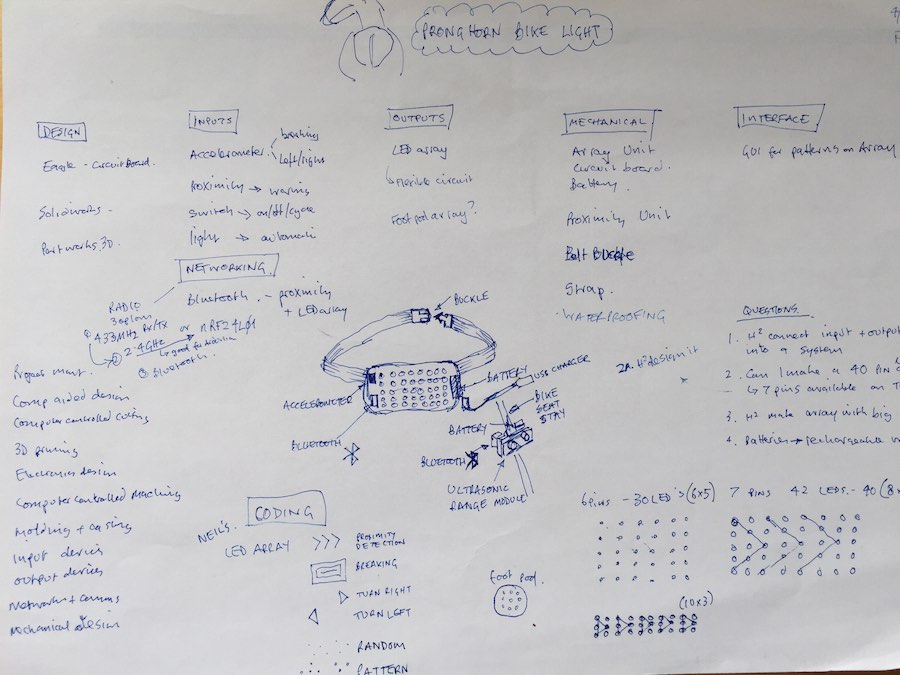 PRONGHORN BIKE LIGHT
DESIGN
Eagle - circuit Board.
Solidworks.
Partworks 3D.
INPUTS
Accelerometer
breaking
Left/right
Proximity → warning
switch → on/off/cycle
light → automatic
NETWORKING
Bluetooth. - proximity
+ LED array
RADIO
3 options
① 433MHz RX/TX
② 2.4GHz or nRF24L01
③ Bluetooth.
OUTPUTS
LED array
Flexible circuit
Foot pod array?
MECHANICAL
Array Unit
Circuit board.
Battery.
Proximity Unit
Buckle
Strap.
WATERPROOFING
INTERFACE
GUI for patterns on Array
QUESTIONS.
1. H² connect input + output
into a system
2. Can I make a 40 PIN
↳ 7 pins available on
3. H² make array with big
4. Batteries → rechargeable
2A. H² design it
Project mant.
Comp aided design
Computer controlled cutting
3D printing
Electronics design
Computer Controlled Machining
Molding + casting
Input devices
Output devices
Networks + comms
Mechanical design
BUCKLE
ACCELEROMETER
BLUETOOTH
BATTERY
USB CHARGER
BIKE
SEAT
STAY
BATTERY
BLUETOOTH
ULTRASONIC
RANGE MODULE
CODING
NEIL'S.
LED ARRAY
>>> PROXIMITY
DETECTION
BREAKING
TURN RIGHT
TURN LEFT
RANDOM
PATTERN
Foot pod.
6 pins - 30 LED's (6x5)
7 PINS 42 LEDS. - 40
(10x3)